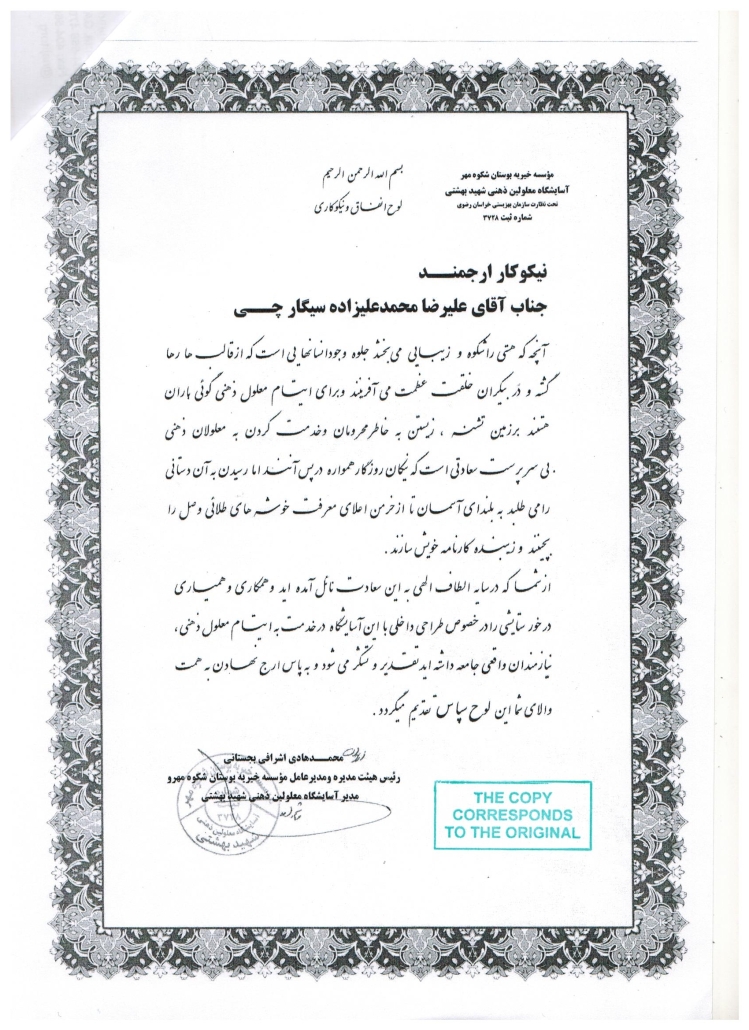 بسم الله الرحمن الرحیم
لوح انفاق و نیکوکاری
مؤسسه خیریه بوستان شکوه مهر
آسایشگاه معلولین ذهنی شهید بهشتی
تحت نظارت سازمان بهزیستی خراسان رضوی
شماره ثبت ۳۷۲۸
نیکوکار ارجمنــد
جناب آقای علیرضا محمدعلیزاده سیگار چــی
آنچه که هستی را شکوه و زیبایی می بخشد جلوه وجود انسانهایی است که از قالب ها رها
گشته و در بیکران خلقت عظمت می آفرینند و برای ایتام معلول ذهنی گوئی باران
هستند بر زمین تشنه ، زیستن به خاطر محرومان و خدمت کردن به معلولان ذهنی
بی سرپرست سعادتی است که نیکان روزگار همواره در پس آنند اما رسیدن به آن دستانی
را می طلبد به بلندای آسمان تا از خرمن اعلای معرفت خوشه های طلائی وصل را
بچینند و زیبنده کارنامه خویش سازند .
از شما که در سایه الطاف الهی به این سعادت نائل آمده اید و همکاری و همیاری
در خور ستایشی را در خصوص طراحی داخلی با این آسایشگاه در خدمت به ایتام معلول ذهنی ،
نیازمندان واقعی جامعه داشته اید تقدیر و تشکر می شود و به پاس ارج نهادن به همت
والای شما این لوح سپاس تقدیم میگردد .
محمدهادی اشرافی بجستانی
رئیس هیئت مدیره و مدیرعامل مؤسسه خیریه بوستان شکوه مهر و
مدیر آسایشگاه معلولین ذهنی شهید بهشتی
۳۷۲۸
آسایشگاه معلولین ذهنی
شهید بهشتی
THE COPY
CORRESPONDS
TO THE ORIGINAL